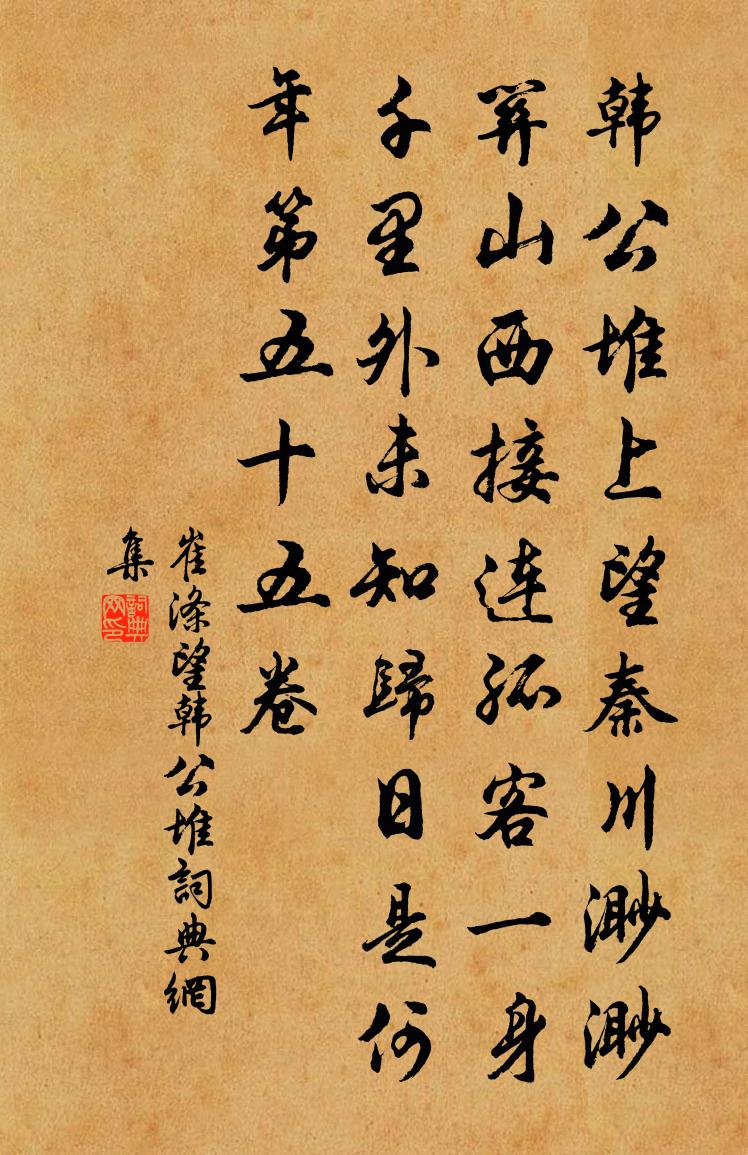 韩公堆上望秦川渺渺
関山西接連孤客一身
千里外未知歸日是何
年第五十五卷
崔滌望韩公堆詞典網
集
詞典網印